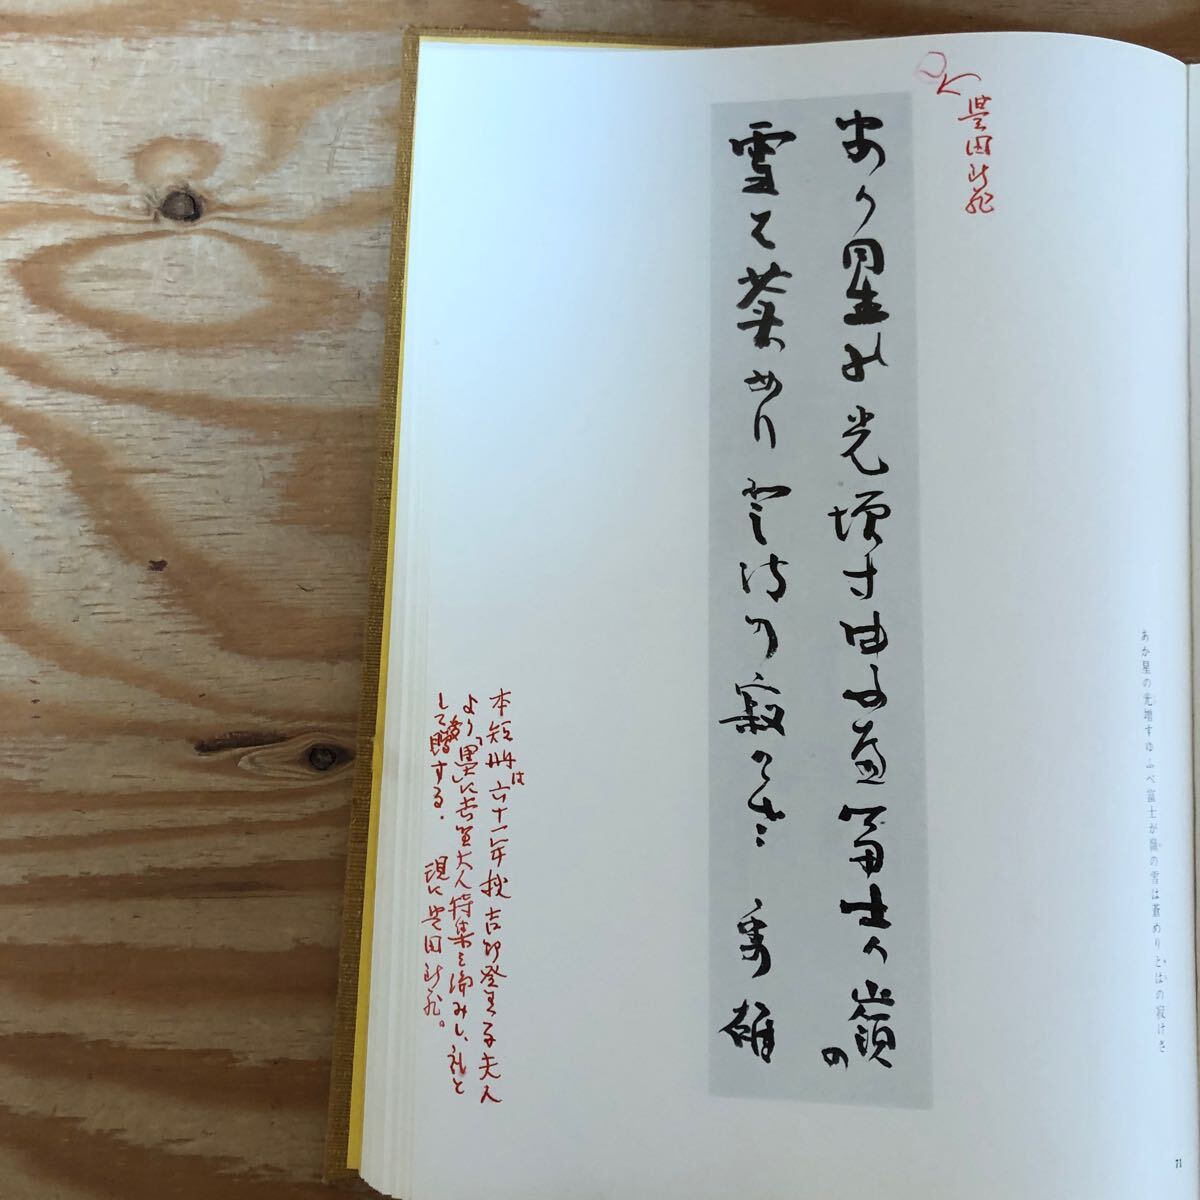 あか星の光増すゆふべ富士が嶺の雪は蒼めりとはの寂けさ
豊田
あか星の光増すゆふべ富士か嶺の
雪は蒼めりとはの寂けさ 秀雄
本短冊は六十二年秋吉野登美子夫人
より「墨」に吉野大人特集を編みし、礼と
して贈する. 現に豊田
71